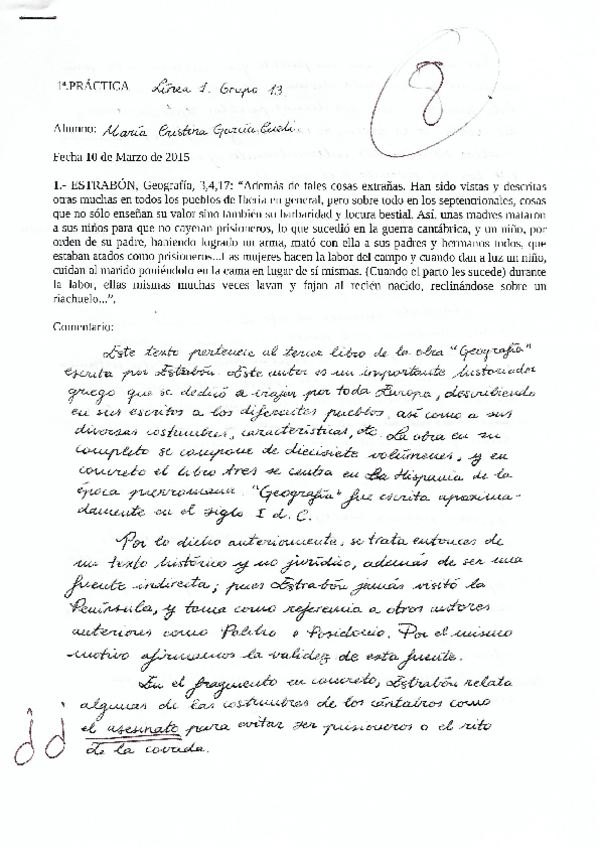 8
1ª.PRÁCTICA Línea 1. Grupo 13
Alumno: María Cristina García
Fecha 10 de Marzo de 2015
1.- ESTRABÓN, Geografía, 3,4,17: “Además de tales cosas extrañas. Han sido vistas y descritas
otras muchas en todos los pueblos de Iberia en general, pero sobre todo en los septentrionales, cosas
que no sólo enseñan su valor sino también su barbaridad y locura bestial. Así, unas madres mataron
a sus niños para que no cayeran prisioneros, lo que sucedió en la guerra cantábrica, y un niño, por
orden de su padre, habiendo logrado un arma, mató con ella a sus padres y hermanos todos, que
estaban atados como prisioneros...Las mujeres hacen la labor del campo y cuando dan a luz un niño,
cuidan al marido poniéndolo en la cama en lugar de sí mismas. (Cuando el parto les sucede) durante
la labor, ellas mismas muchas veces lavan y fajan al recién nacido, reclinándose sobre un
riachuelo...”.
Comentario:
Este texto pertenece al tercer libro de la obra "Geografía"
escrita por Estrabón. Este autor es un importante historiador
griego que se dedicó a viajar por toda Europa, describiendo
en sus escritos a los diferentes pueblos, así como a sus
diversas costumbres, características, etc. La obra en su
completo se compone de diecisiete volúmenes, y en
concreto el libro tres se centra en La Hispania de la
época prerromana. "Geografía" fue escrita aproxima-
damente en el siglo I d.C.
Por lo dicho anteriormente, se trata entonces de
un texto histórico y no jurídico, además de ser una
fuente indirecta; pues Estrabón jamás visitó la
Península, y toma como referencia a otros autores
anteriores como Polibio o Posidonio. Por el mismo
motivo afirmamos la validez de esta fuente.
En el fragmento en concreto, Estrabón relata
algunas de las costumbres de los cántabros como
el asesinato para evitar ser prisioneros o el rito
de la covada.